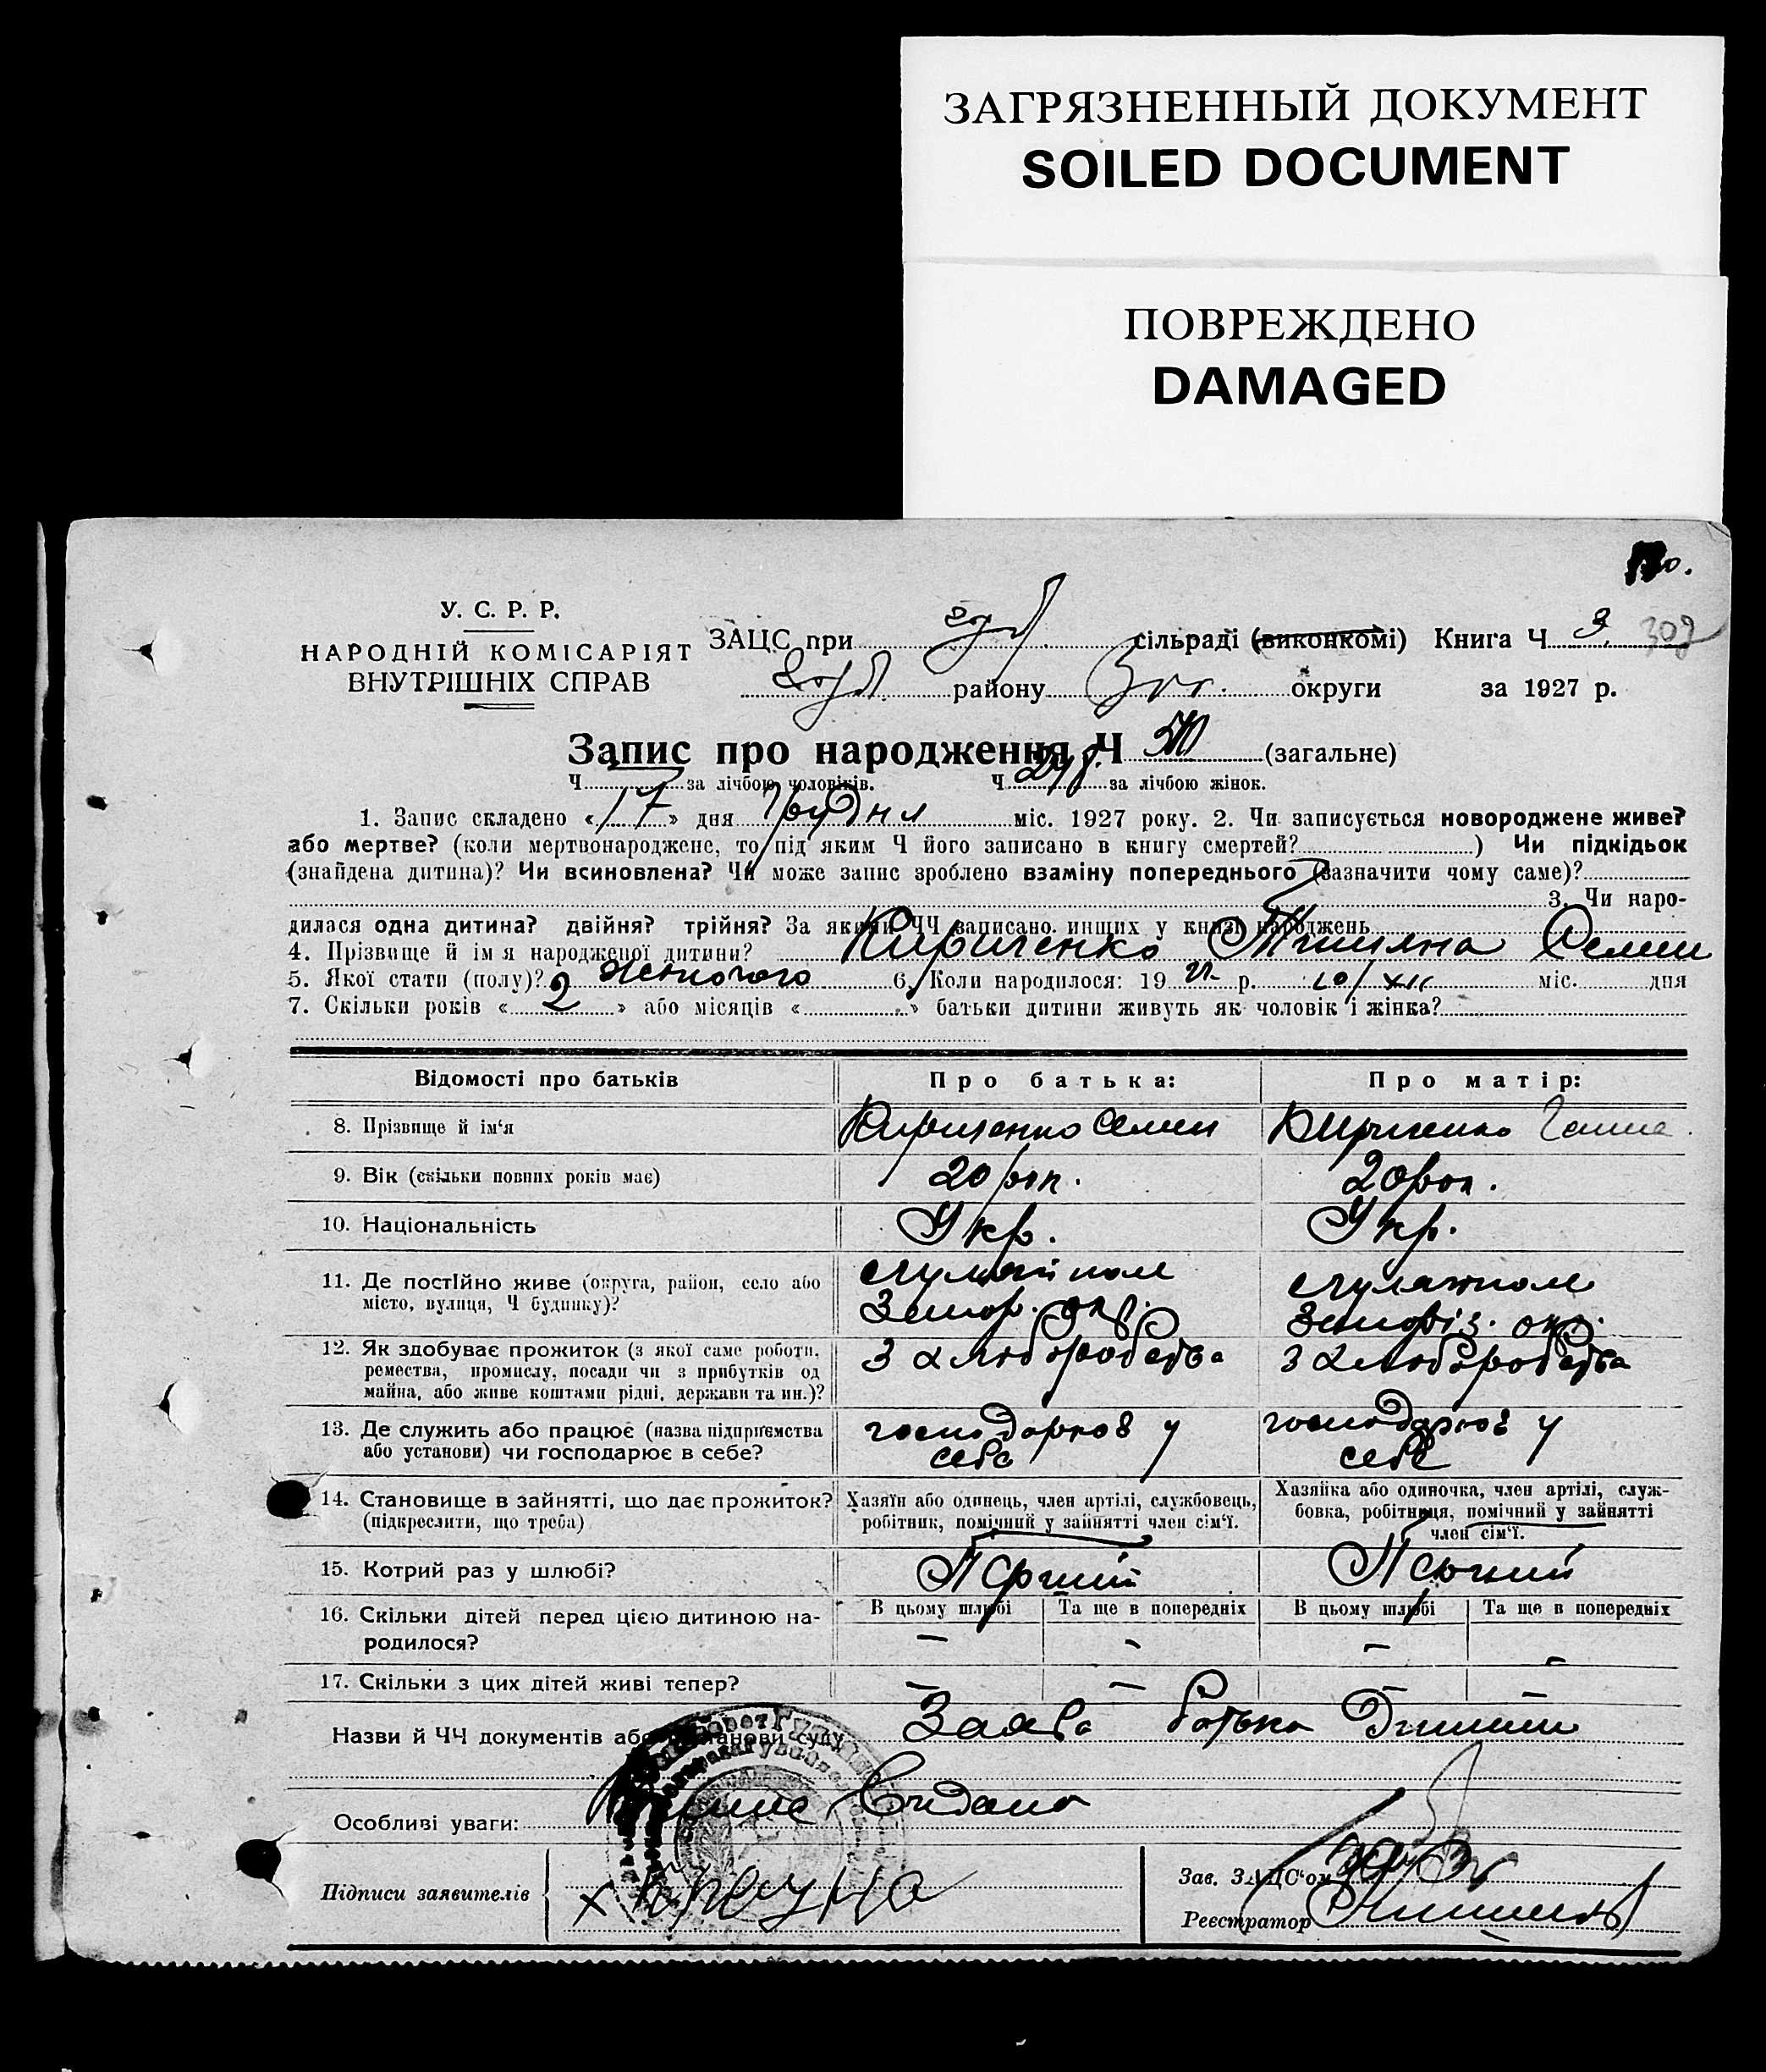 ЗАГРЯЗНЕННЫЙ ДОКУМЕНТ
SOILED DOCUMENT
ПОВРЕЖДЕНО
DAMAGED
У. С. Р. Р.
НАРОДНІЙ КОМІСАРІЯТ
ВНУТРІШНІХ СПРАВ
ЗАЦС при сільраді (виконкомі) Книга Ч 3. 308
району округи за 1927 р.
Запис про народження Ч (загальне)
Ч за лічбою чоловіків. Ч 248. за лічбою жінок.
1. Запис складено «17» дня Грудня міс. 1927 року. 2. Чи записується новороджене живе?
або мертве? (коли мертвонароджене, то під яким Ч його записано в книгу смертей? ) Чи підкідьок
(знайдена дитина)? Чи всиновлена? Чи може запис зроблено взаміну попереднього (зазначити чому саме)?
3. Чи наро-
дилася одна дитина? двійня? трійня? За якими ЧЧ записано инших у книзі народжень
4. Прізвище й ім я народженої дитини? Кириченко Семен
5. Якої стати (полу)? жіночого 6. Коли народилося: 19 27 р. 10/XII міс. дня
7. Скільки років «2» або місяців « » батьки дитини живуть як чоловік і жінка?
Відомості про батьків Про батька: Про матір:
8. Прізвище й ім'я Кириченко Семен Кириченко Ганна
9. Вік (скільки повних років має) 20 рок. 20 рок.
10. Національність Укр. Укр.
11. Де постійно живе (округа, район, село або
місто, вулиця, Ч будинку)?
Запор. окр.
Запоріз. окр.
12. Як здобуває прожиток (з якої саме роботи,
ремества, промислу, посади чи з прибутків од
майна, або живе коштами рідні, держави та ин.)?
з хліборобства з хліборобства
13. Де служить або працює (назва підприємства
або установи) чи господарює в себе?
господарює у
себе
господарює у
себе
14. Становище в зайнятті, що дає прожиток?
(підкреслити, що треба)
Хазяїн або одинець, член артілі, службовець,
робітник, помічний у зайнятті член сім'ї.
Хазяйка або одиночка, член артілі, служ-
бовка, робітниця, помічний у зайнятті
член сім'ї.
15. Котрий раз у шлюбі? Перший Перший
16. Скільки дітей перед цією дитиною на-
родилося?
В цьому шлюбі Та ще в попередніх В цьому шлюбі Та ще в попередніх
– – – –
17. Скільки з цих дітей живі тепер? – – – –
Назви й ЧЧ документів або постанови суду Заява батька
Особливі уваги: видано
Підписи заявителів
Зав. ЗАЦС'ом
Реєстратор